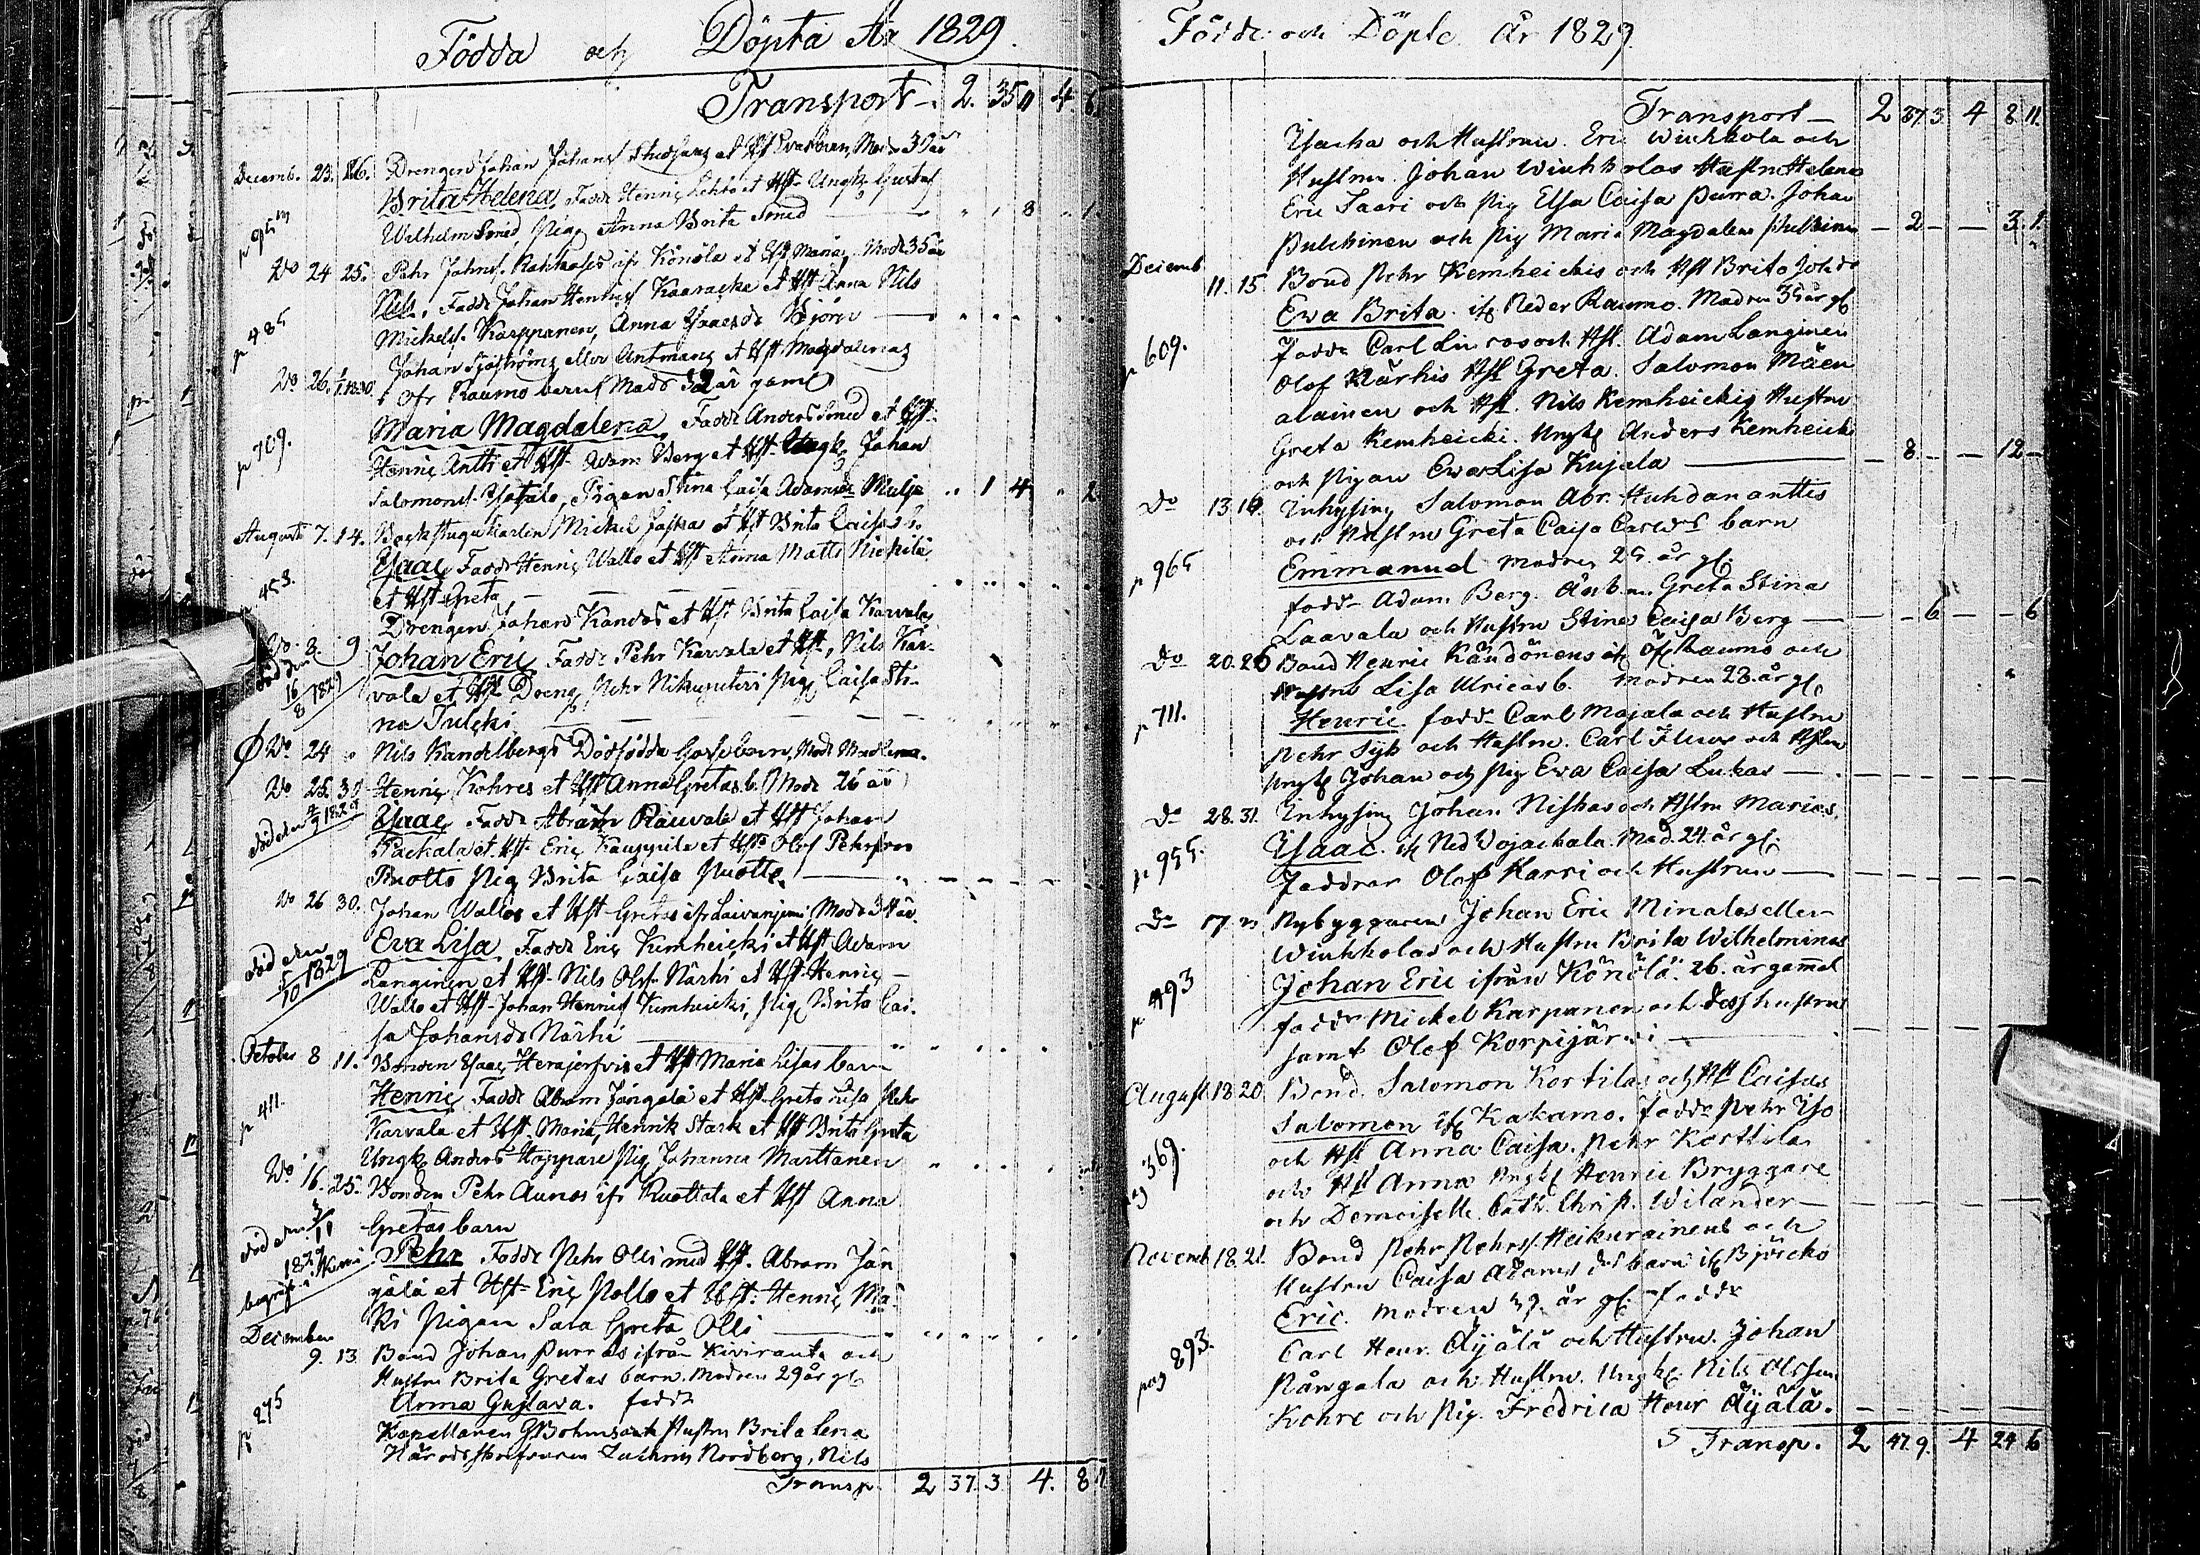 Födda och Döpta År 1829.
Transport 2. 35 11 4. 6.
Decemb. 23. 26. Drengen Johan Johans
Brita Helena. Fadd: Henric et Hst. Ungk. Gustaf
Wilhelm Smed, Pig. Anna Brita Smed 8 1.
Do 24 25. Pehr Johns. ifr Könölä et Hst Marias Mod: 35 år
Nils. Fadd: Johan Henrics Kaaracka et Hst Anna Nils
p 485
Mickels. Karppanen, Anna Isaacsdr Björn
Johan Sjöströms eller Antmans et Hst Magdalenas
Do 26. 1/1 1830 ofr Raumo barn Mod: år gaml
Maria Magdalena Fadd: Anders Smed et Hst.
p 709.
Henric Antti et Hst. Adam Berg et Hst. Ungk. Johan
Salomons. Pigan Stina Caisa Adamsdr 1 4 2
Augusti 7. 14. Backstugukarlen Mickel et Hst Brita Caisas b.
Isaac Fadd: Henric Wallo et Hst Anna Matts
p 453.
et Hst Greta
Drengen Johan et Hst Brita Caisa Karvalas
Do 8. 9 Johan Eric Fadd: Pehr Karvala et Hst, Nils Kar-
död den 16/8 1829
vala et Hst Dreng Pehr Pig. Caisa Sti-
na
Do 24 Nils Kandelbergs Dödfödda Gossebarn, Mod:
Do 25. 30 Henric Kohres et Hst Anna Gretas b. Mod: 26 år
död den 1829
Isaac Fadd: Abrah. Rauvala et Hst Johan
Packala et Hst. Eric Kauppila et Hst Olof Pehrsson
Ruotto Pig Brita Caisa Ruotto
Do 26 30. Johan Wallos et Hst Gretas ifr Laivaniemi Mod: 34 år
Eva Lisa. Fadd: Eric Kemheicki et Hst Adam
död den 5/10 1829
Langinen et Hst Nils Olofs. Närhi et Hst Henric
Wallo et Hst Johan Henrics Kemheicki, Pig. Brita Cai-
sa Johansdr Närhi
October 8 11. Bonden Isaac Herajerfvis et Hst Maria Lisas barn
Henric Fadd: Abram Jängälä et Hst Greta Lisa Pehr
p 411.
Karvala et Hst. Maria, Henrik Stark et Hst Brita Greta
Ungk. Anders Hoppare Pig. Johanna Marttanen
Do 16. 25. Bonden Pehr Aunos ifr Ruottala et Hst Anna
Gretas barn
död den
Pehr Fadd: Pehr Olli med Hst. Abram Jän
begrafven i Kemi
gälä et Hst Eric Pollo et Hst: Henric Mä-
ki Pigan Sara Greta Olli
December
9. 13 Bond Johan Purras ifrån Kiviranta och
Hustru Brita Gretas barn. Modren 29 år gl.
p 295
Anna Gustava. fadd:
Kapellanen Bohm och Hustru Brita Lena
Häradsskrifvaren Zachris Nordberg, Nils
Transp. 2 37. 3 4. 8 11

Födde och Döpte År 1829.
Transport 2 37. 3. 4 8 11.
och Hustrun. Eric Winkkola och
Hustrun. Johan Winkkolas Hustru Helena
Eric Saari och Pig Elsa Caisa Purra. Johan
Pulckinen och Pig Maria Magdalena Pulkinen 2 3. 1.
Decemb
11. 15. Bond Pehr Kemheickis och Hst Brita Johsdr
Eva Brita. ifr Neder Raumo. Modren 35 år gl
p 609.
fadd: Carl och Hst. Adam Langinen
Olof Närhis Hst Greta. Salomon Mäen
alainen och Hst. Nils Kemheickis Hustru
Greta Kemheicki. Ungk Anders Kemheicki
och Pigan Eva Lisa Kujala 8 12
Do 13. 14. Inhysing Salomon Abr. Huhdananttis
och Hustru Greta Caisa Carlsdr barn
p 965
Emmanuel modren 25. år gl.
fadd: Adam Berg. Greta Stina
Laavala och Hustru Stina Caisa Berg 6 6
Do 20. 26 Bond Henric Kändönens ifr Öfr Raumo och
Hustru Lisa Ulricas b. modren 28. år gl.
p 711.
Henric. fadd: Carl Majala och Hustru
Pehr och Hustru. Carl och Hstru
Ungk Johan och Pig Eva Caisa Lukas
Do 28. 31. Inhysing Johan Niskas och Hstru Marias.
p 955.
Isaac. ifr Ned Vojackala. Mod. 24. år gl.
Faddrar Olof Karri och Hustrun
Do 17. Nybyggaren Johan Eric Minalas eller
Winkkolas och Hustru Brita Wilhelminas
p 493
Johan Eric ifrån Könölä. 26. år gamal
fadd: Mickel Karpanen och dess hustru
samt Olof Korpijärvi
August 18. 20 Bond. Salomon Kortilas och Hst Caisas
Salomon ifr Kakamo. fadd: Pehr Iso
pag 369.
och Hst Anna Caisa. Pehr Korttila
och Hst Anna Ungk Henric Bryggare
och Demoiselle Cath. Christ. Wilander
Novemb. 18. 21. Bond Pehr Pehrss. Heikurainens och
Hustru Caisa Adamsdrs barn ifr Björcko
Eric. modren 39. år gl. fadd:
pag 893.
Carl Henr. Äyälä och Hustru. Johan
Rångala och Hustru. Ungk. Nils Olsson
Kohre och Pig. Fredrica Henr Äyälä.
S Transp. 2 47. 9. 4 24 6